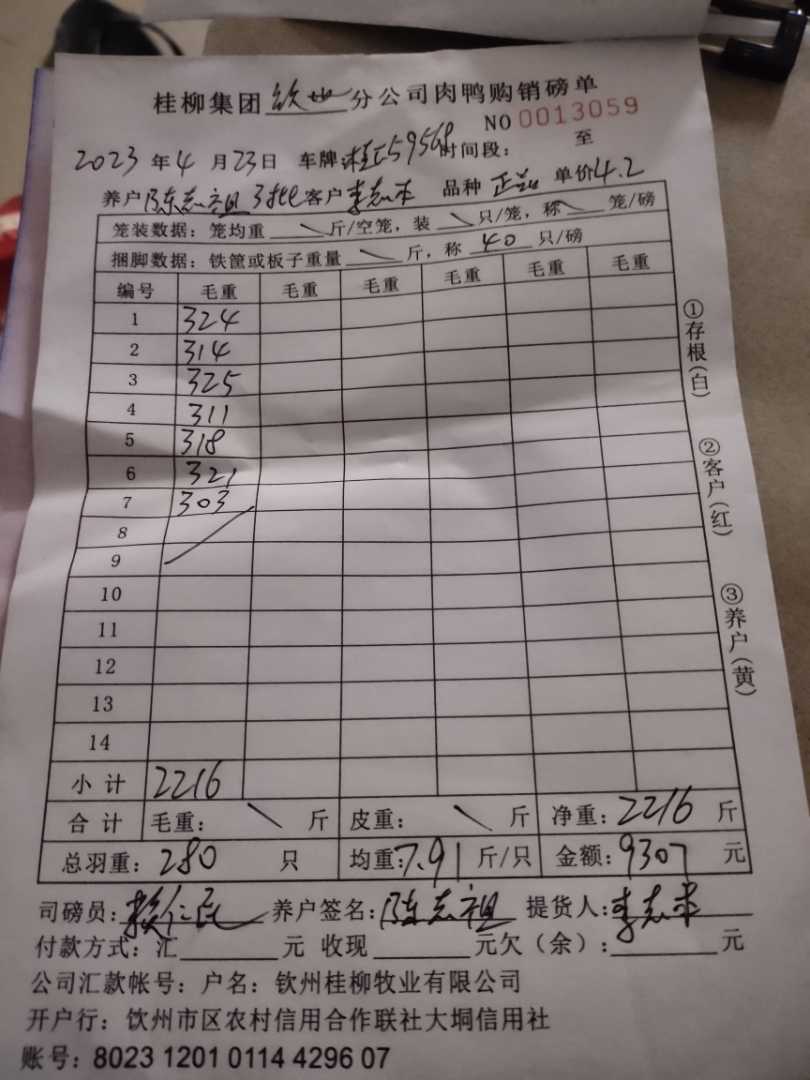 桂柳集团钦州分公司肉鸭购销磅单
NO 0013059
2023年4月23日 车牌:桂E59568 时间段: 至
养户 陈志祖 3批 客户 李志 品种 单价4.2
笼装数据:笼均重 \ 斤/空笼,装 \ 只/笼,称 \ 笼/磅
捆脚数据:铁筐或板子重量 \ 斤,称 40 只/磅
编号 毛重 毛重 毛重 毛重 毛重 毛重
1 324
2 314
3 325
4 311
5 318
6 321
7 303
8
9
10
11
12
13
14
小计 2216
合计 毛重: \ 斤 皮重: \ 斤 净重:2216 斤
总羽重:280 只 均重:7.91 斤/只 金额:9307 元
司磅员:赖仁民 养户签名:陈志祖 提货人:李志
付款方式:汇 元 收现 元欠(余): 元
公司汇款帐号:户名:钦州桂柳牧业有限公司
开户行:钦州市区农村信用合作联社大垌信用社
账号:8023 1201 0114 4296 07
①存根(白)
②客户(红)
③养户(黄)